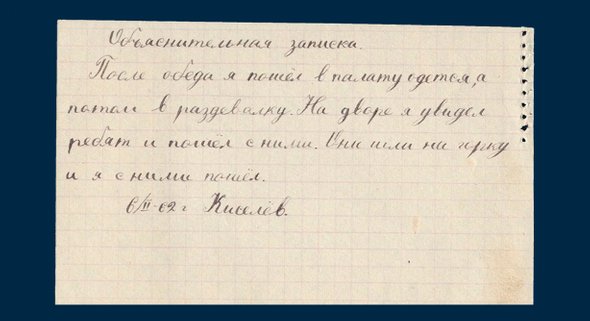 Объяснительная записка.
После обеда я пошёл в палату одеться, а
потом в раздевалку. На дворе я увидел
ребят и пошёл с ними. Они шли на горку
и я с ними пошёл.
6/II-62 г Киселёв.